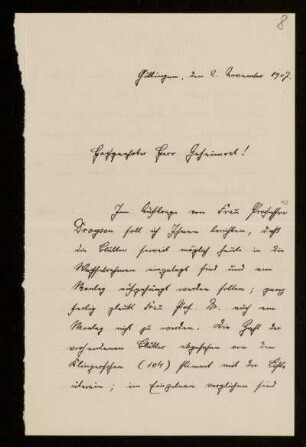 8
Göttingen, den 2. November 1907.
Hochgeehrter Herr Geheimrat!
Im Auftrage von Frau Professor
soll ich Ihnen berichten, daß
die Blätter soweit möglich heute in die
eingelegt sind und am
Montag aufgehängt werden sollen; ganz
fertig glaubt Frau Prof. Dr. auch am
Montag nicht zu werden. Die Zahl der
vorhandenen Blätter abgesehen von den
Klingerschen (104) stimmt mit der Liste
überein; im Einzelnen verglichen sind